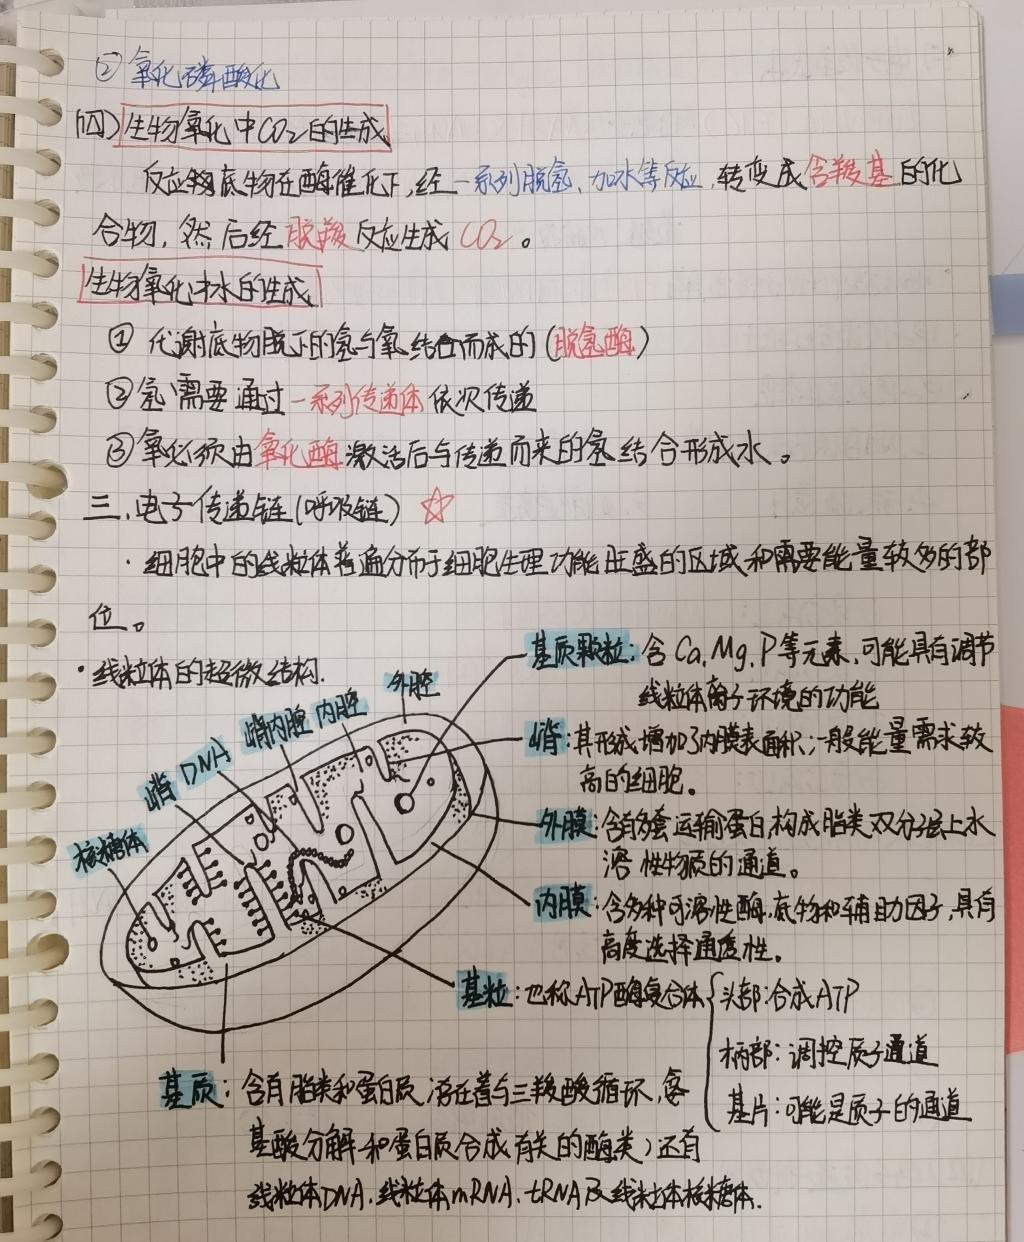 ② 氧化磷酸化
(四) 生物氧化中CO₂的生成
反应物底物在酶催化下,经一系列脱氢、加水等反应,转变成含羧基的化
合物,然后经脱羧反应生成CO₂。
生物氧化中水的生成
① 代谢底物脱下的氢与氧结合而成的(脱氢酶)
② 氢需要通过一系列传递体依次传递
③ 氧必须由氧化酶激活后与传递而来的氢结合形成水。
三、电子传递链(呼吸链)☆
·细胞中的线粒体普遍分布于细胞生理功能旺盛的区域和需要能量较多的部
位。
·线粒体的超微结构.
外腔
内腔
嵴内腔
DNA
嵴
核糖体
基质颗粒:含Ca,Mg,P等元素,可能具有调节
线粒体离子环境的功能
嵴:其形成增加了内膜表面积,一般能量需求较
高的细胞。
外膜:含有多套运输蛋白,构成脂类双分子层上水
溶性物质的通道。
内膜:含多种可溶性酶、底物和辅助因子,具有
高度选择通透性。
基粒:也称ATP酶复合体
头部:合成ATP
柄部:调控质子通道
基片:可能是质子的通道
基质:含有脂类和蛋白质,存在着与三羧酸循环,氨
基酸分解和蛋白质合成有关的酶类)还有
线粒体DNA、线粒体mRNA、tRNA及线粒体核糖体.